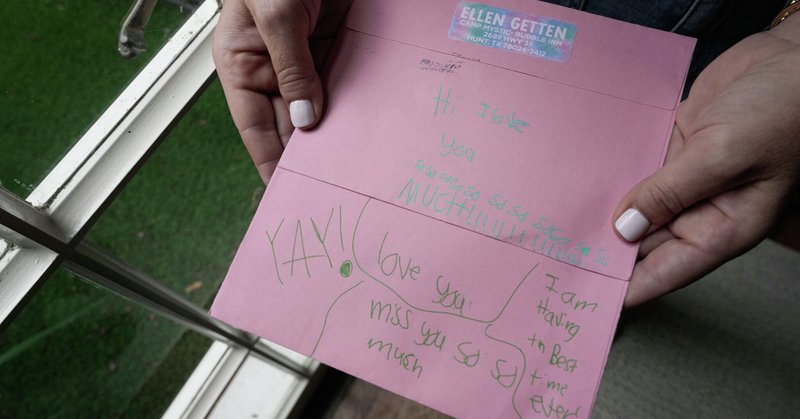 ELLEN GETTEN
CAMP MYSTIC BUBBLE INN
2689 HWY 39
HUNT, TX 78024-3412
Hi I love
you
So So so So So So So So So So So
MUCH!!!!!!!!!!!!!!!
YAY!
love you
miss you so so
much
I am
Having
th Best
time
ever!